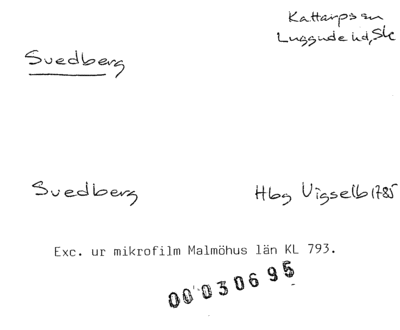 Kattarps sn
Luggude hd, Sk
Svedberg
Svedberg
Hbg Vigselb 1785
Exc. ur mikrofilm Malmöhus län KL 793.
00030695